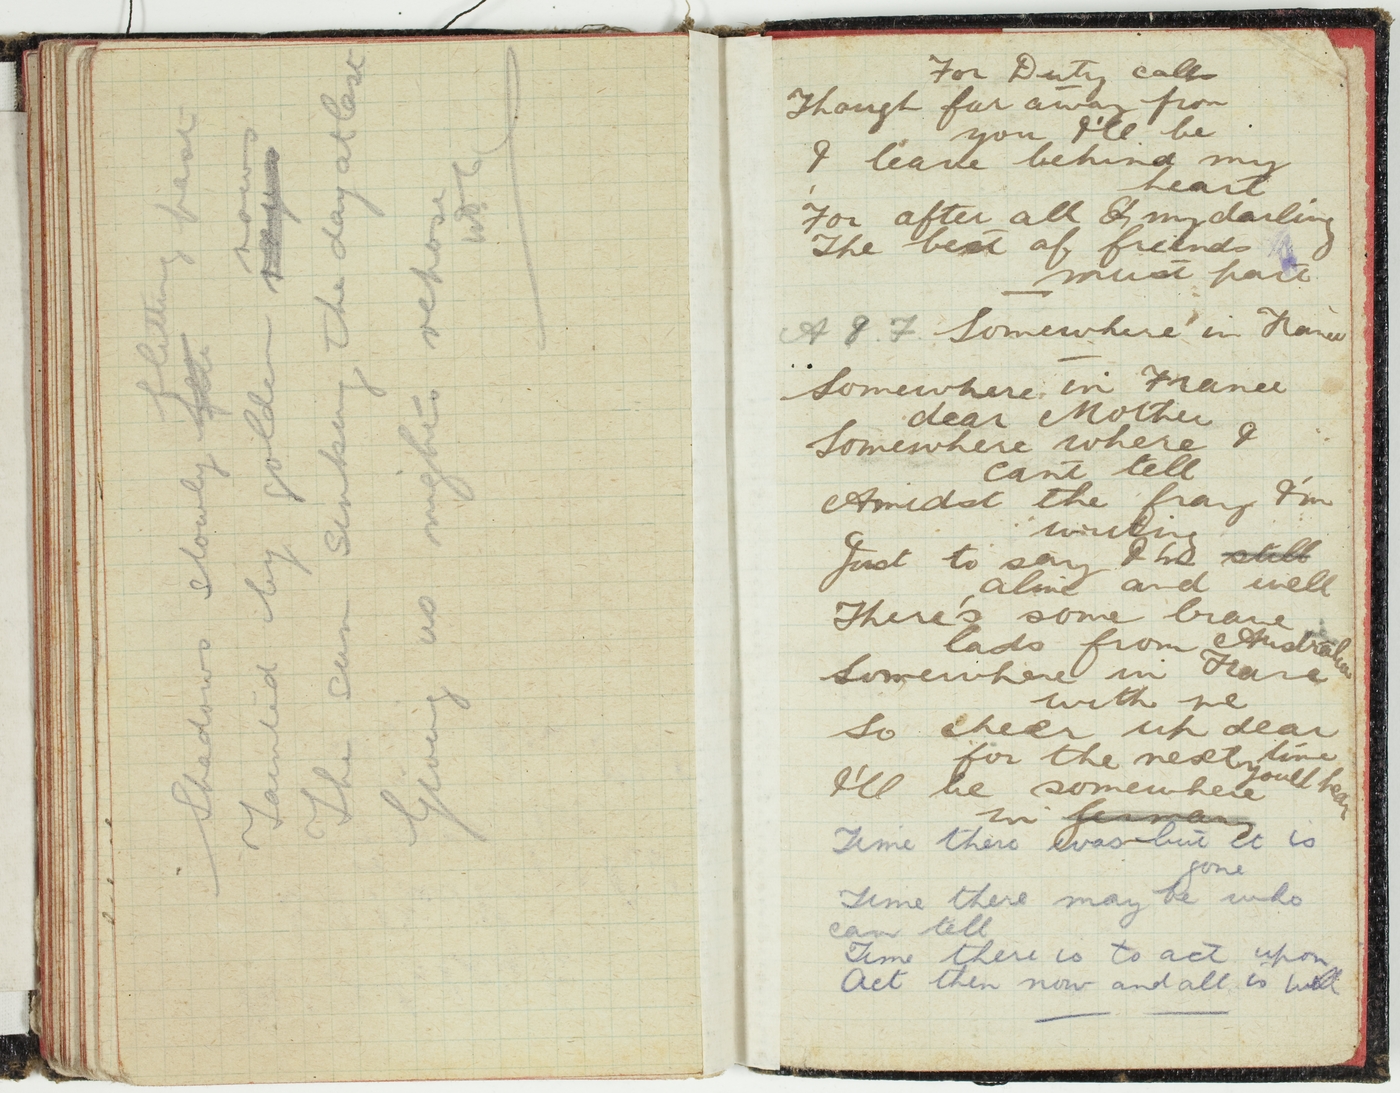 Shadows slowly flitting past
Tainted by golden rows
The sun sinking the day at last
Giving us nights repose
For Duty calls
Though far away from
you I'll be
I leave behind my
heart
For after all my darling
The best of friends
must part
A I F. Somewhere in France
Somewhere in France
dear Mother
Somewhere where I
cant tell
Amidst the fray I'm
writing
Just to say I'm still
alive and well
There's some brave
lads from Australia
Somewhere in France
with me
So cheer up dear
for the next time
you'll hear
I'll be somewhere
in Germany
Time there was but it is
gone
Time there may be who
can tell
Time there is to act upon
Act then now and all is well